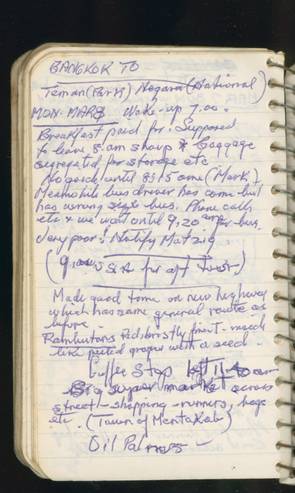 BANGKOK TO
Teman (Park) Negara (National)
MON. MAR 8 Wake-up 7.00.
Breakfast paid for. Supposed
to leave 8.am sharp & baggage
segregated for storage etc
No guide until 8:15 am (Mark)
Meanwhile bus driver has come but
has wrong size bus. Phone calls
etc & we wait until 9.20 am for bus.
Very poor! Notify
(9.
Made good time on new highway
which has same general route as
before.
Rambutans Red bristly fruit - much
like peeled grapes with a seed.
Coffee Stop 11-40 am
Big super market across
street - shopping - runners, bags
etc. (Town of Mentakab)
Oil Palms -